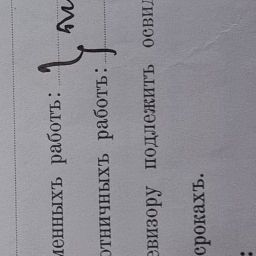 менныхъ работъ:
отничныхъ работъ:
евизору подлежитъ осви
срокахъ.